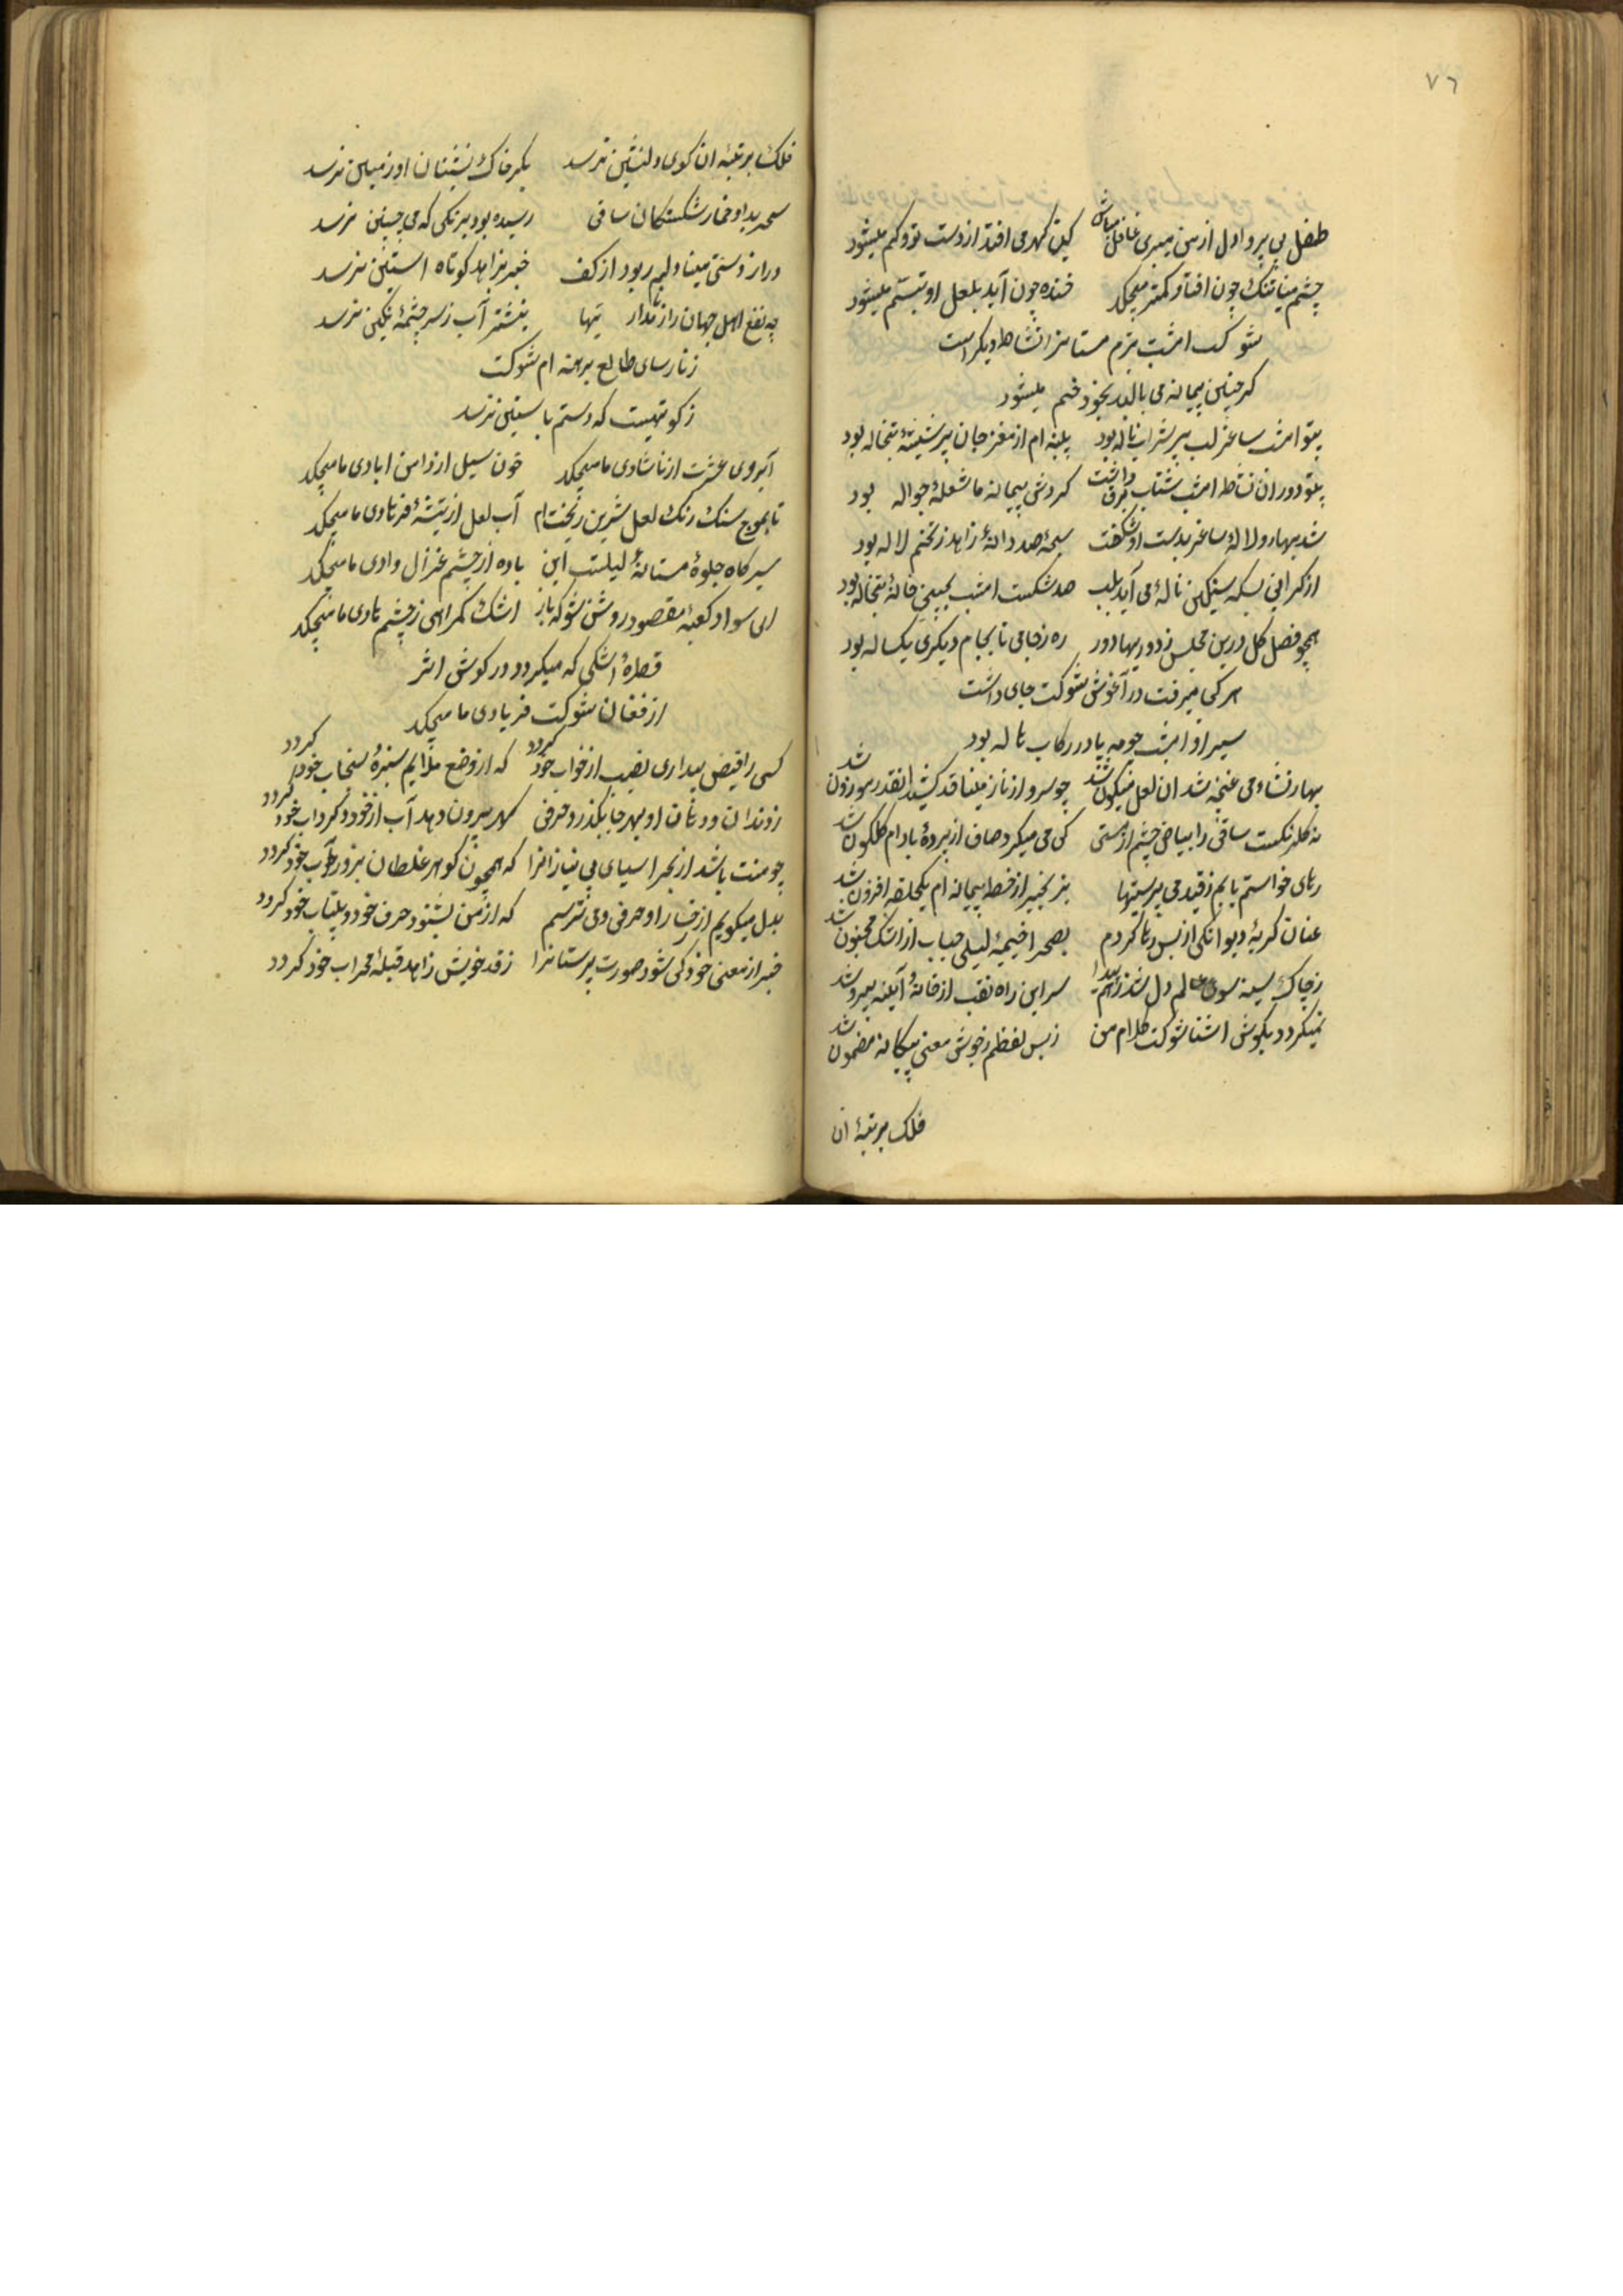 ٧٦
طفل بی پروا دل از من میبری غافل مباش کین کهر می افتد از دست تو و کم میشود
چشم مینا تنک چون افتاد کمتر میچکد خنده چون آید بلعل او تبسم میشود
شوکت امشب بزم مستانرا نشاط دیکر است
کر چنین پیمانه می بالد بخود خم میشود
بیتو امشب ساغر لب پر شراب ناله بود پنبه ام از مغز جان پر شیشهٔ تبخاله بود
بیتو دوران نشاط امشب شتاب برق داشت کردش پیمانهٔ ما شعلهٔ جواله بود
شد بهار و لالهٔ ساغر بدست او شکفت سبحهٔ صد دانهٔ زاهد ز تخم لاله بود
از کرانی بسکه سنکین ناله می آید بلب صد شکست امشب بجیب خانهٔ تبخاله بود
همچو فصل کل درین مجلس ز دوریها دور ره ز جامی تا بجام دیکری یکساله بود
هر کی میرفت در آغوش شوکت جای داشت
سیر او امشب چو مه پا در رکاب هاله بود
بهار نشاء می غنچه شد ان لعل میکون شد چو سرو از ناز مینا قد کشید انقدر موزون شد
نه کلرنکست ساقی را بیاض چشم از مستی که می میکرد صاف از پردهٔ بادام کلکون شد
رهای خواستم یابم ز قید می پرستیها بزنجیر از خط پیمانه ام یکحلقه افزون شد
عنان کریهٔ دیوانکی از بس رها کردم بصحرا خیمهٔ لیلی حباب از اشک مجنون شد
ز چاک سینه سوی عالم دل شد رهم پیدا سر این راه نقب از خانهٔ آیینه بیرون شد
نمیکردد بکوش اشنا شوکت کلام من ز بس لفظم ز خویش معنی بیکانه مضمون شد
فلک برتبهٔ ان
فلک برتبهٔ ان کوی دلنشین نرسد بکرد خاک نشینان او زمین نرسد
سحر بداد خمار شکستکان ساقی رسیده بود بیرنکی که می چنین نرسد
دراز دستی مینا دلم ربود از کف خبر بزاهد کوتاه استین نرسد
چه نفع اهل جهان را ز نامدار یها بتشنه آب ز سر چشمهٔ نکین نرسد
ز نارسای طالع برهنه ام شوکت
ز کوتهیست که دستم باستین نرسد
آبروی عشرت از ناشادی ما میچکد خون سیل از دامن ابادی ما میچکد
تا بموج سنک رنک لعل شیرین ریخت ام آب لعل از تیشهٔ فرهادی ما میچکد
سیر کاه جلوهٔ مستانهٔ لیلیست این باده از چشم غزال وادی ما میچکد
ای سواد کعبهٔ مقصود روشن شو که باز اشک کمراهی ز چشم هادی ما میچکد
قطرهٔ اشکی که میکردد در کوش اثر
از فغان شوکت فریادی ما میچکد
کسی را فیض بیداری نصیب از خواب خود کردد که از وضع ملایم سبزهٔ سنجاب خود کردد
ز دندان و دهان او بهر جا بکذرد حرفی کهر بیرون دهد آب از خود و کرداب خود کردد
چو منت باشد از بحر اسیای بی نیازانرا که همچون کوهر غلطان بزور آب خود کردد
بدل میکویم از رخسار او حرفی و می ترسم که از من بشنود حرف خود و بیتاب خود کردد
خبر از معنی خود کی شود صورت پرستانرا ز قد خویش زاهد قبلهٔ محراب خود کردد